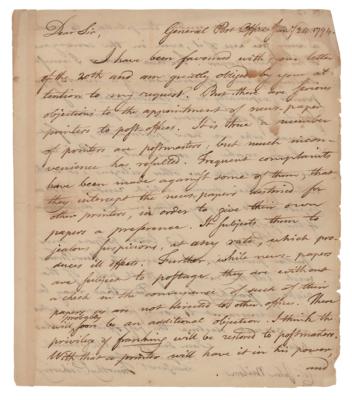 Dear Sir, General Post Office Jany 24. 1794.
I have been favoured with your letter
of the 20th and am greatly obliged by your at
tention to my request. But there are serious
objections to the appointment of news-paper
printers to post-offices. It is true a number
of printers are postmasters; but much incon-
venience has resulted. Frequent complaints
have been made against some of them, that
they intercept the news papers destined for
other printers, in order to give their own
papers a preference. It subjects them to
jealous suspicions, at any rate, which pro
duces ill effects. Further, while news-papers
are subject to postage, they are without
a check in the conveyance of such of their
papers as are not directed to other offices. There
will probably soon be an additional objection. I think the
privilege of franking will be restored to postmasters.
With that a printer will have it in his power,
and